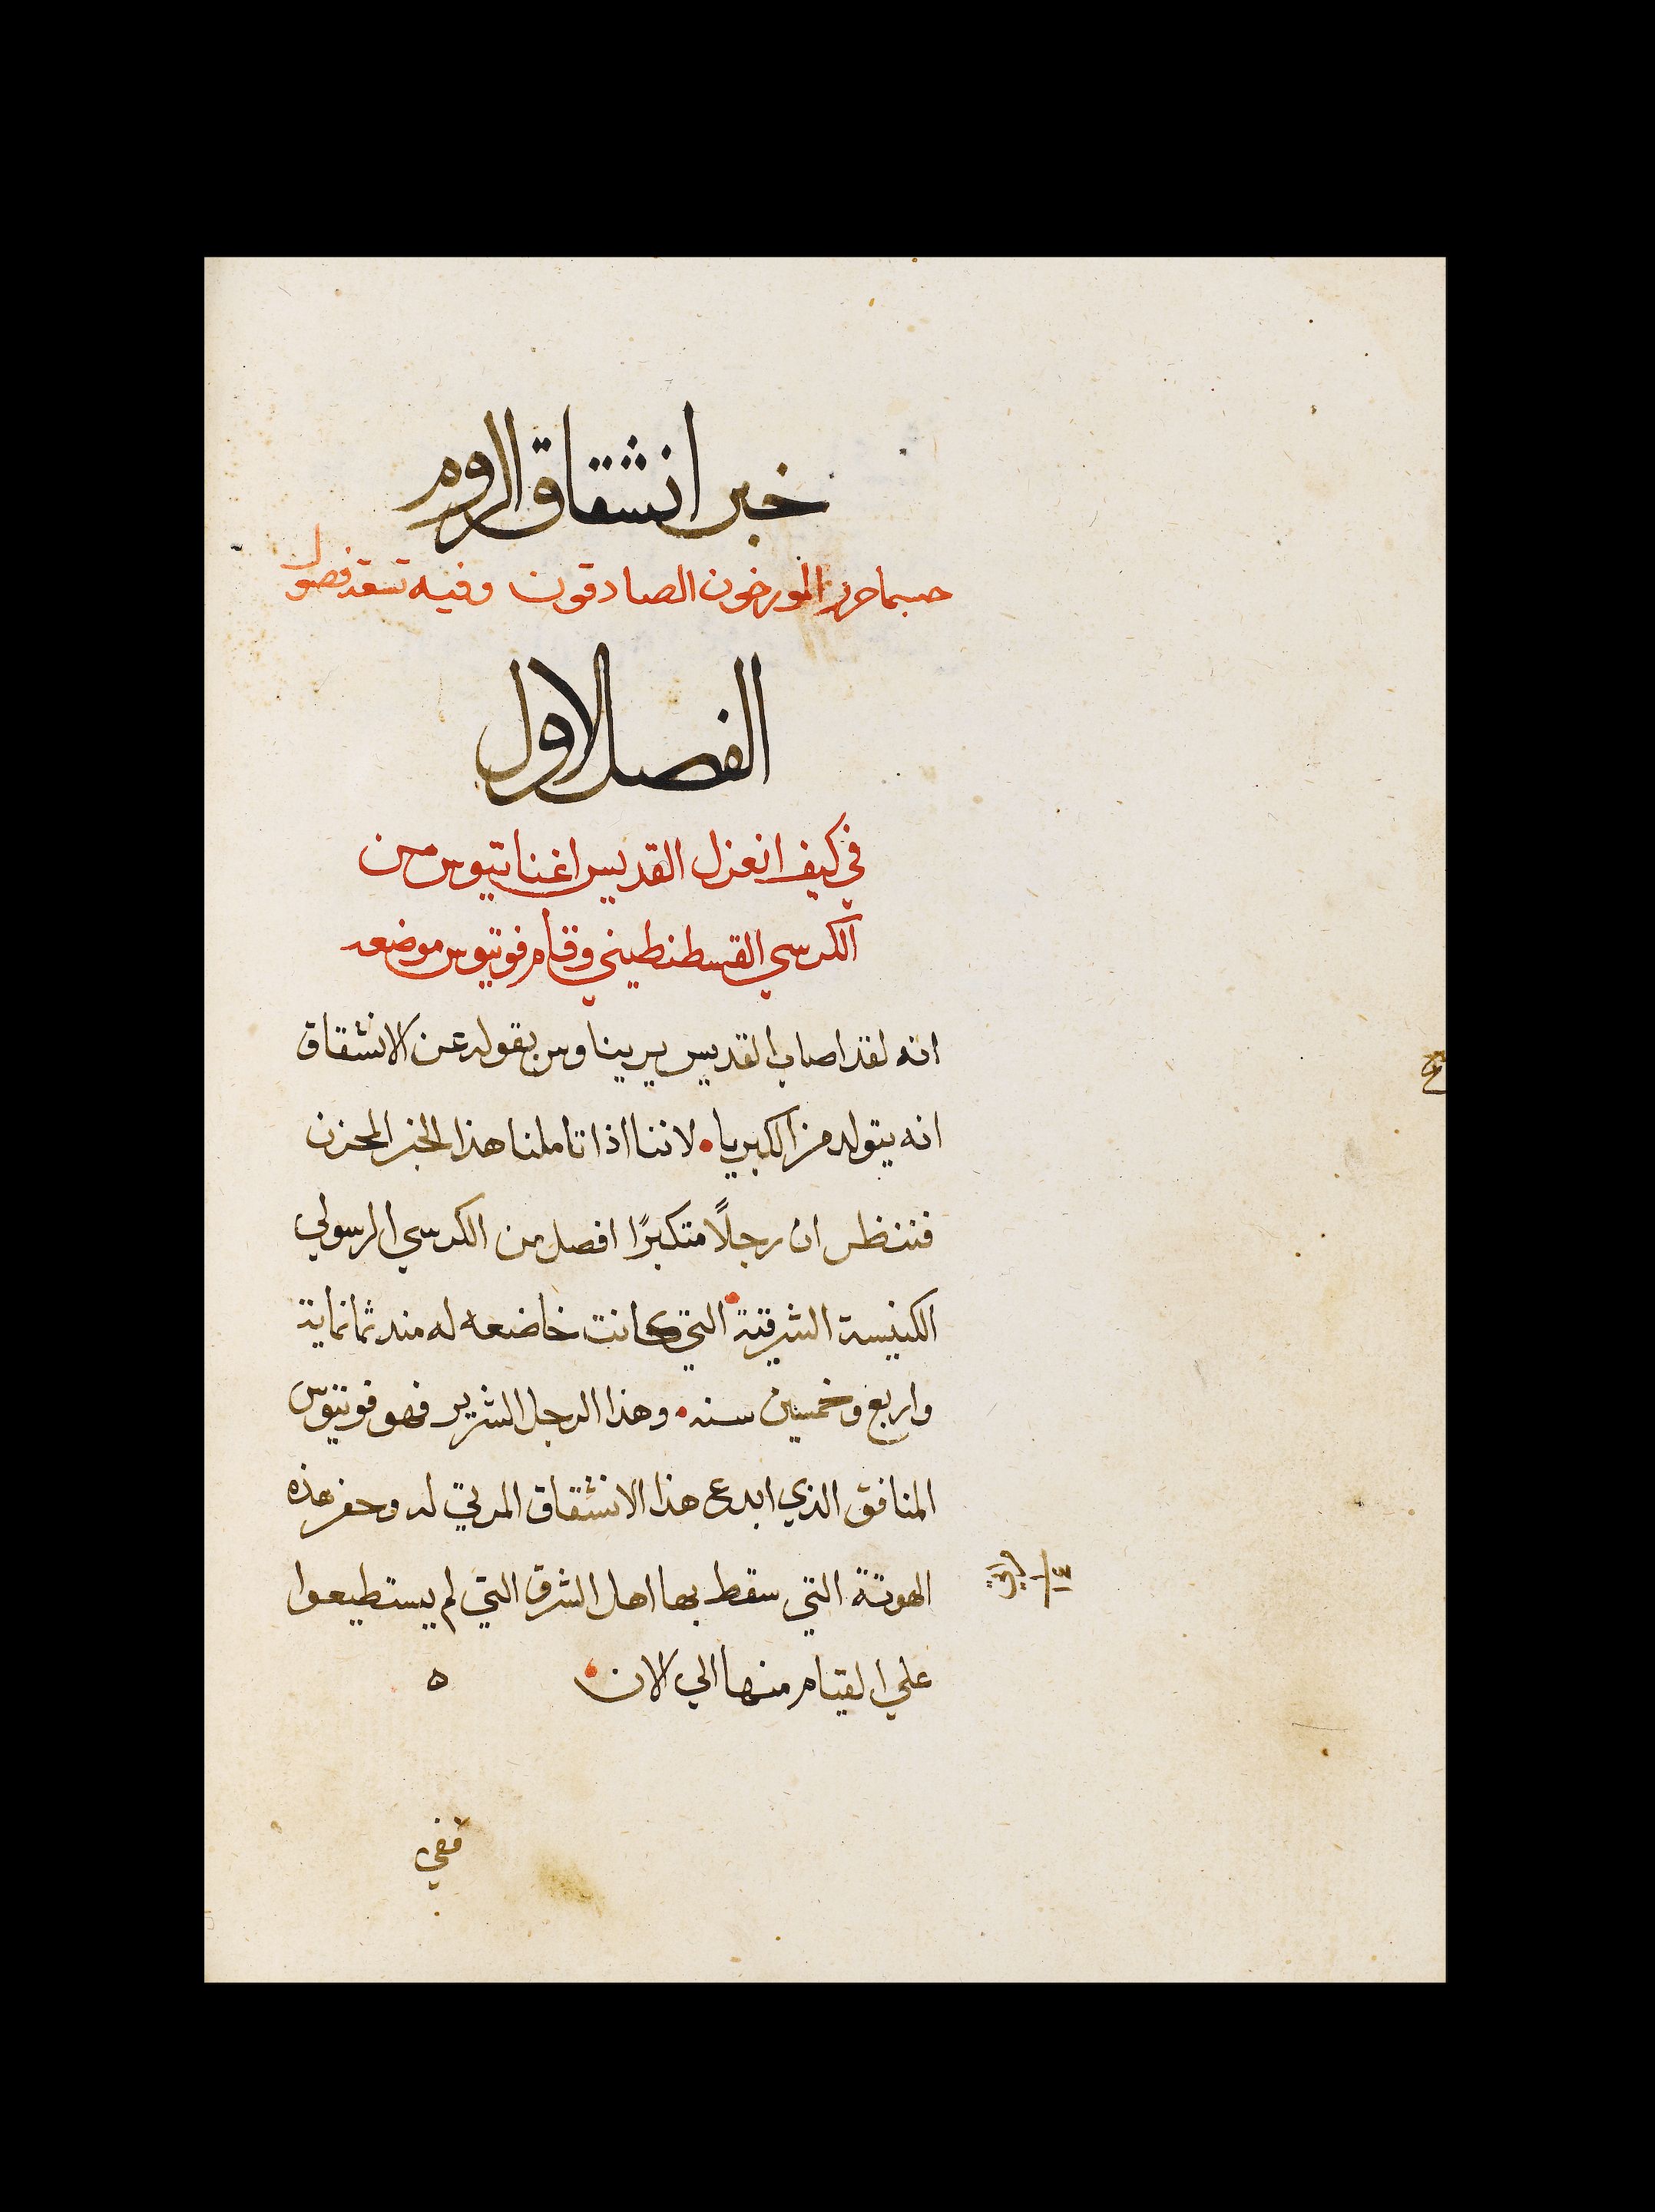 خبر انشقاق الروم
حسبما حرر المورخون الصادقون وفيه تسعة فصول
الفصل الاول
في كيف انعزل القديس اغناتيوس من
الكرسي القسطنطيني وقام فوتيوس موضعه
انه لقد اصاب القديس يريناوس بقوله عن الانشقاق
انه يتولد من الكبريا • لاننا اذا تاملنا هذا الخبر المحزن
فننظر ان رجلًا متكبرًا افصل من الكرسي الرسولي
الكنيسة الشرقية التي كانت خاضعه له منذ ثمانماية
واربع وخمسين سنه • وهذا الرجل الشرير فهو فوتيوس
المنافق الذي ابدع هذا الانشقاق المرتي له وحفر هذه
الهوتة التي سقط بها اهل الشرق التي لم يستطيعوا
علي القيام منها الي الان •
ففي